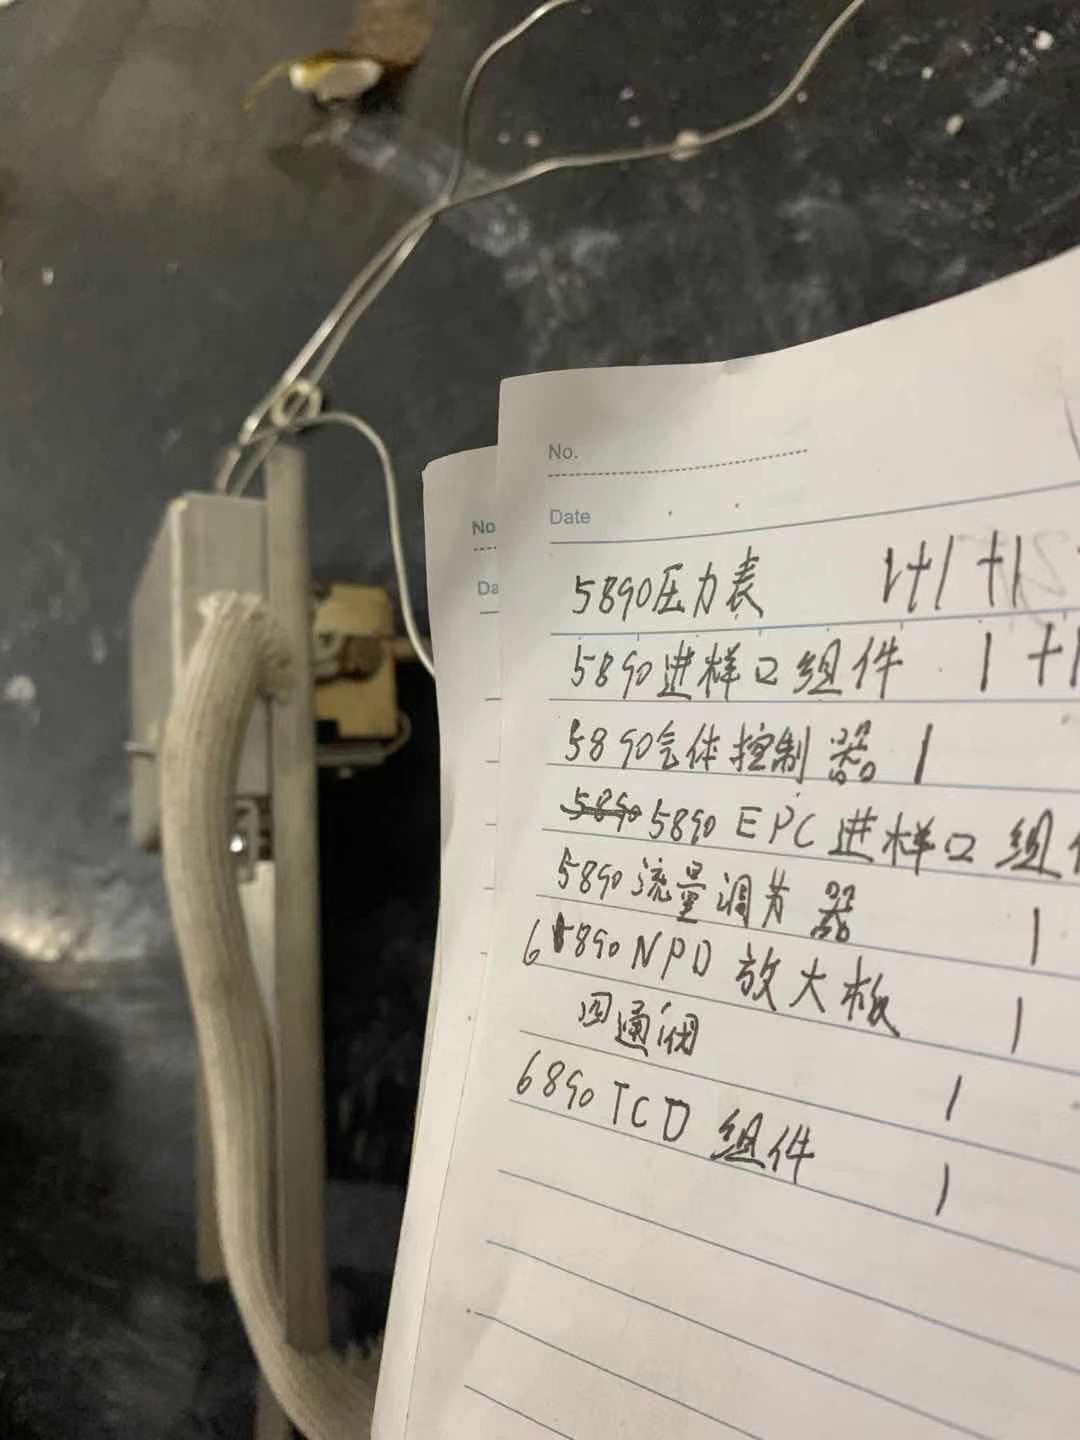 No.
Date
No
Da
5890压力表 1+1 +1
5890进样口组件 1 +1
5890气体控制器 1
5890 5890 EPC进样口组件
5890流量调节器 1
6890 NPD 放大板 1
四通阀 1
6890 TCD 组件 1